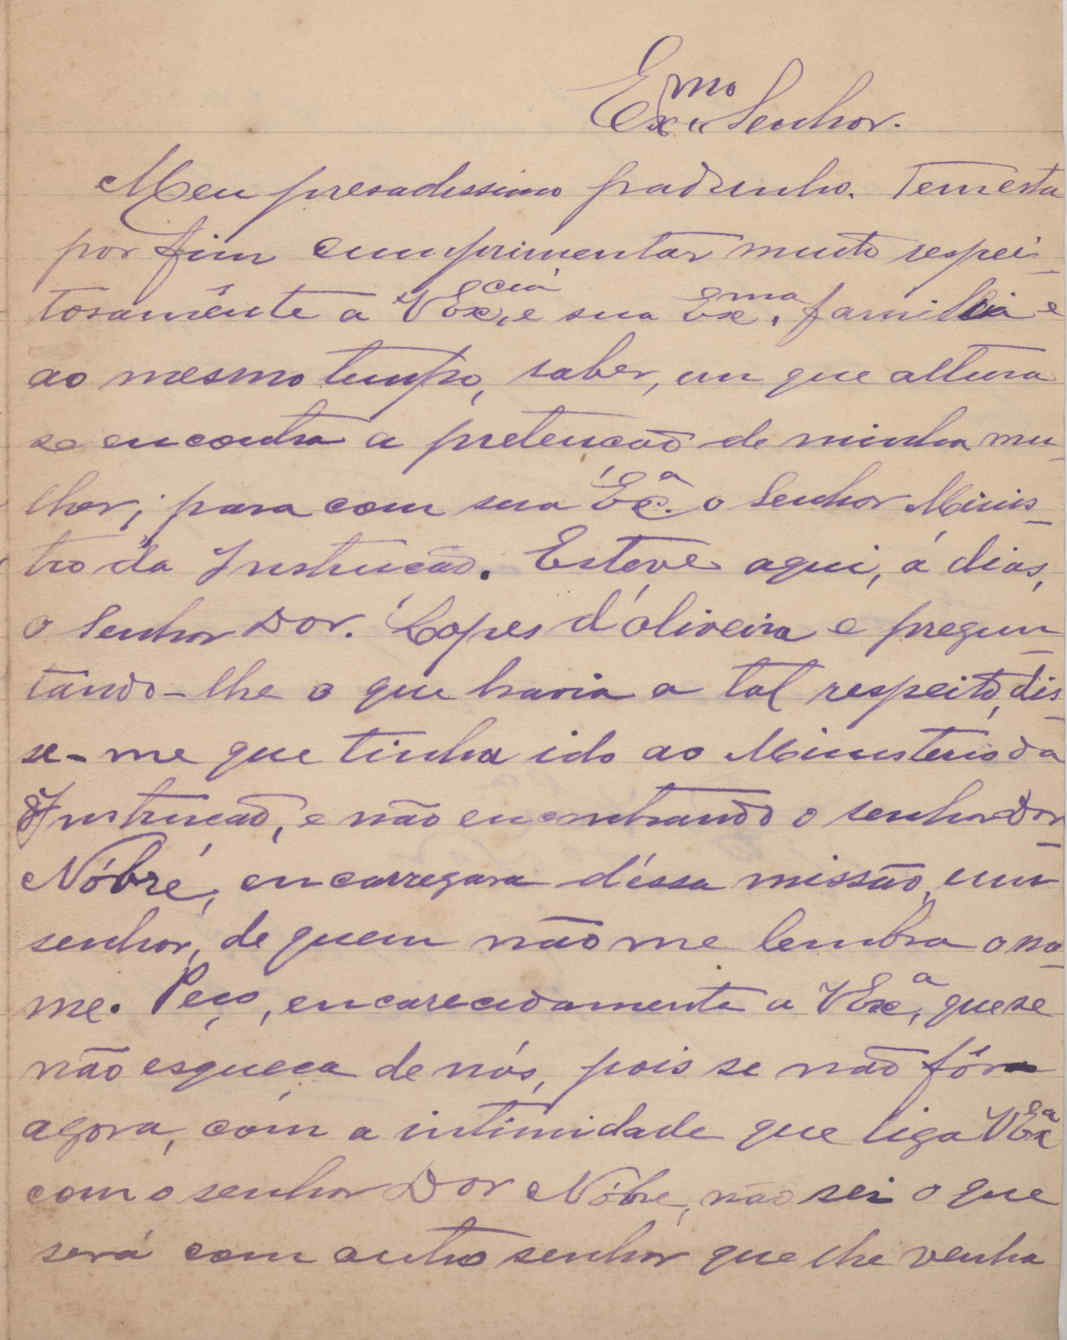 Exmo Senhor.
Meu presadissimo padrinho. Tem esta
por fim cumprimentar muito respei-
tosamente a VExcia, e sua Exma familia e
ao mesmo tempo, saber, em que altura
se encontra a pretencão de minha mu-
lher; para com sua Exa. o Senhor Minis-
tro da Instrucão. Esteve aqui, á dias,
o Senhor Dor. Lopes d'óliveira e pregun-
tando-lhe o que havia a tal respeito, dis-
se-me que tinha ido ao Ministerio da
Instrucão, e não encontrando o senhor Dor
Nóbré, encarregara déssa missão, um
senhor, de quem não me lembra o no-
me. Peço, encarecidamente a VExa, que se
não esqueca de nós, pois se não fôra
agora, com a intimidade que liga VExa
com o senhor Dor Nóbre, não sei o que
será com outro senhor que lhe venha